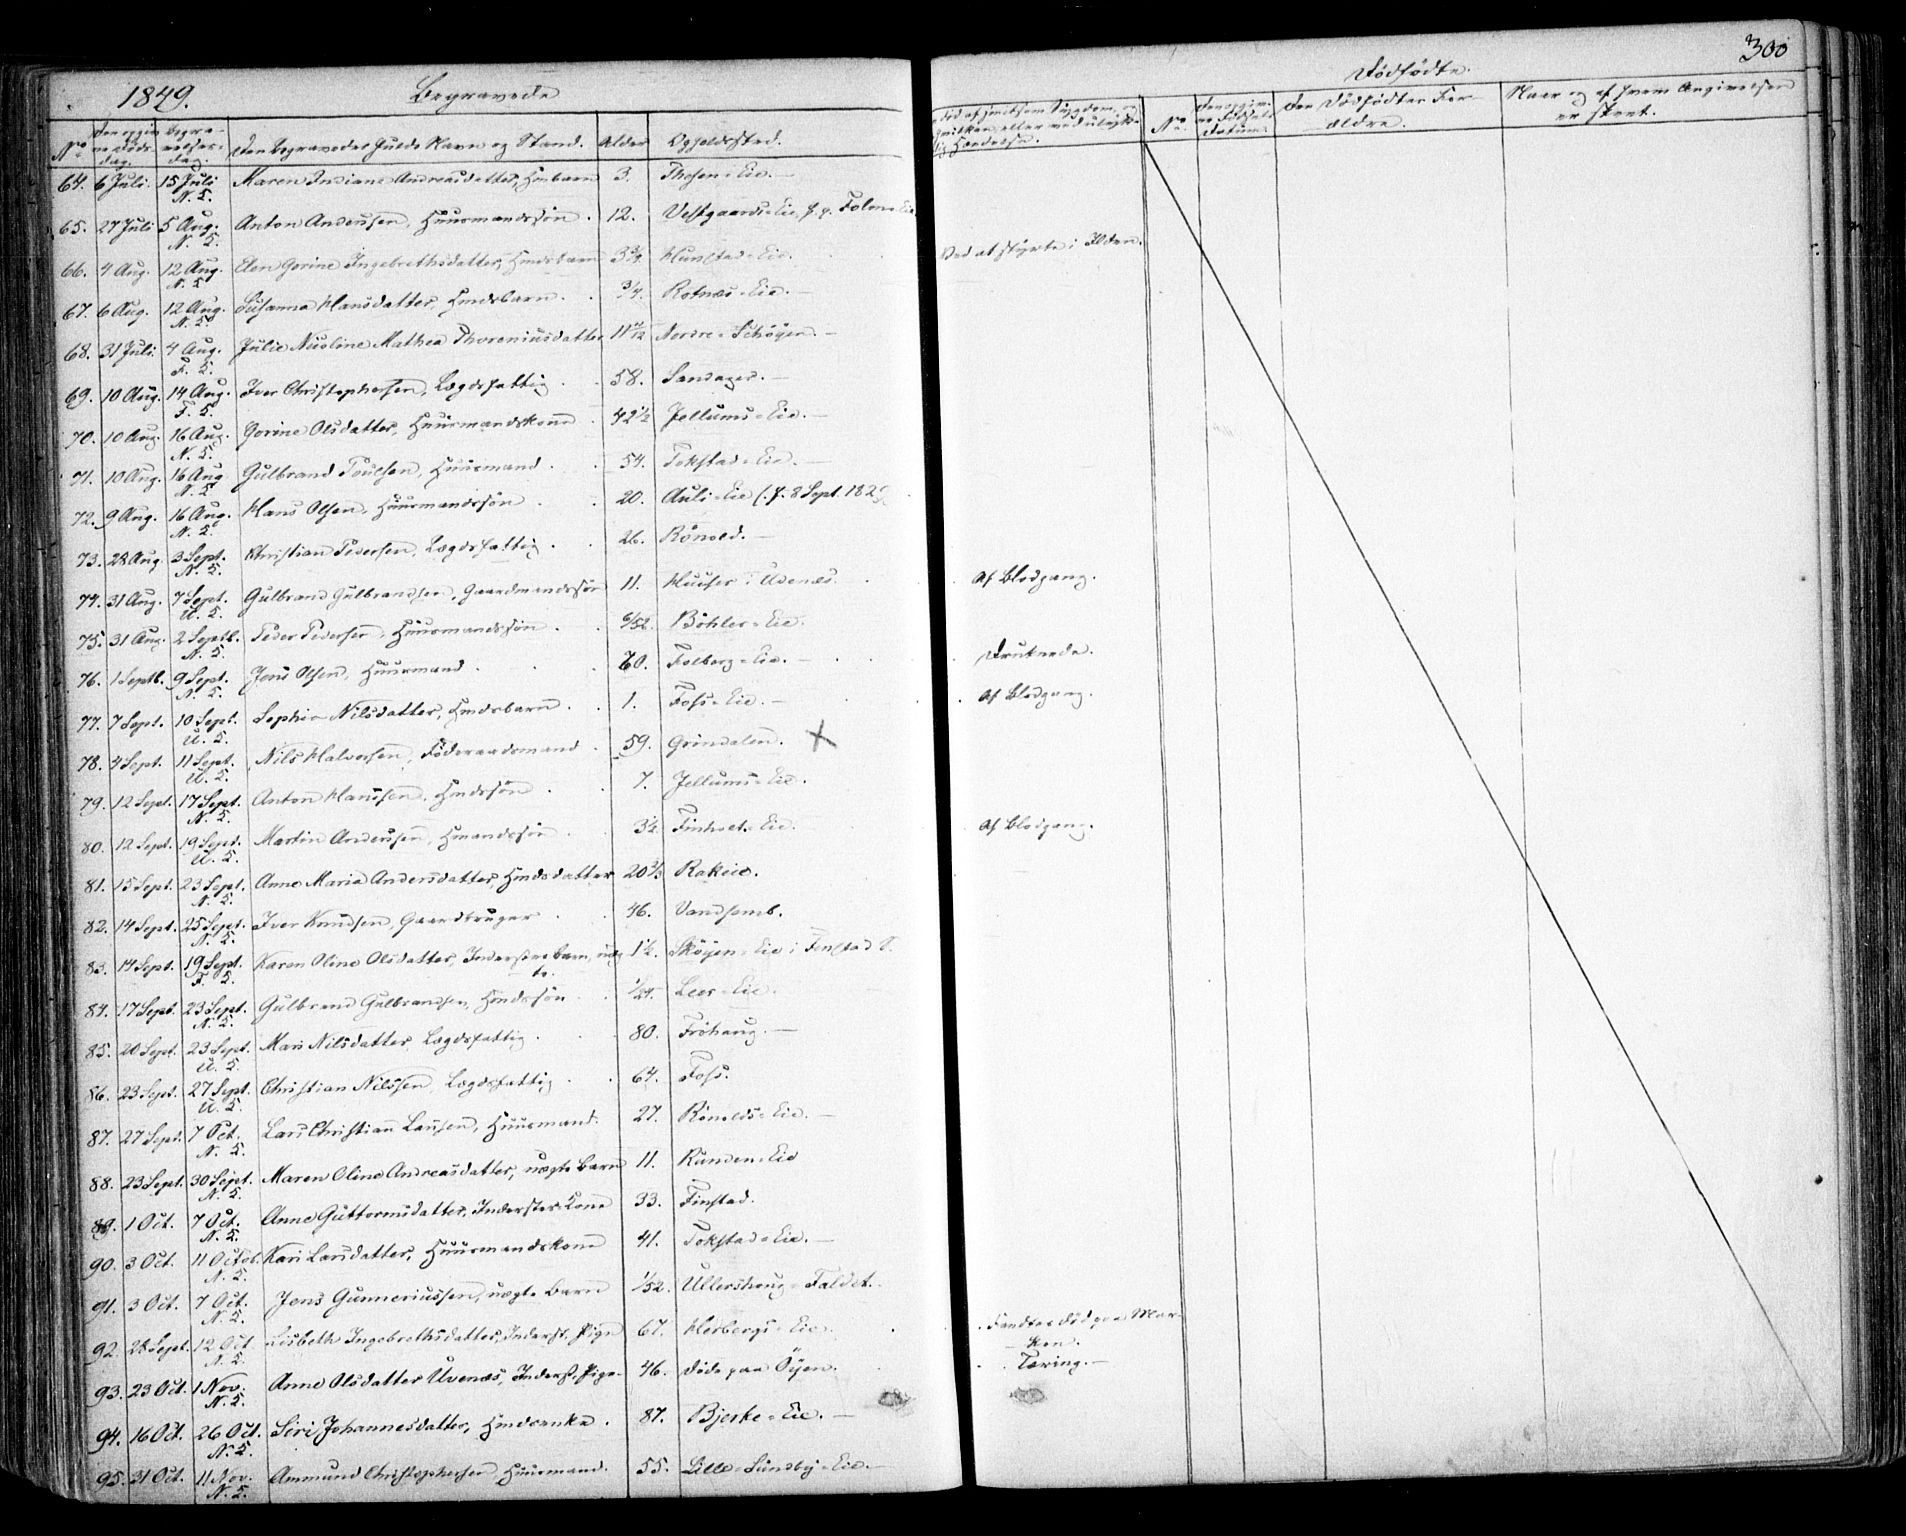 1849. Begravede
No Den opgivne Døds-dag. Begravelses-dag Den Begravedes fulde Navn og Stand. Alder Opholdssted.
64. 6 Juli. 15 Juli N. K. Maren Andreasdatter, Hmbarn 3. Thesen-Eie.
65. 27 Juli 5 Aug. N. K. Anton Andersen, Huusmandssøn. 12. Vestgaards-Eie,
66. 4 Aug. 12 Aug. N. K. Elen Gorine Ingebrethsdatter, Hmdsbarn 3 3/4. Hunstad-Eie.
67. 6 Aug. 12 Aug. N. K. Susanna Hansdatter, Hmdsbarn. 3/4. Rotnæs-Eie.
68. 31 Juli 4 Aug. F. K. Julie Nicoline Mathea Thoreniusdatter 11 Nordre-Schøyen.
69. 10 Aug. 14 Aug. F. K. Iver Christophersen, Lægdsfattig 58. Sandager.
70. 10 Aug. 16 Aug. N. K. Gorine Olsdatter, Huusmandskone 42 1/2 Jellums-Eie.
71. 10 Aug. 16 Aug N. K Gulbrand Poulsen, Huusmand. 54. Tokstad-Eie.
72. 9 Aug. 16 Aug. N. K. Hans Olsen, Huusmandssøn 20. Auli-Eie (f. 8 Sept. 1829.
73. 28 Aug. 3 Sept. N. K. Christian Pedersen, Lægdsfattig. 26. Rønold.
74. 31 Aug. 7 Sept. U. K. Gulbrand Gulbrandsen, Gaardmandssøn 11. Huuser i Udenæs.
75. 31 Aug. 2 Septb. N. K. Peder Pedersen, Huusmandssøn. 6/52. Bøhler-Eie.
76. 1 Septb. 9 Sept. N. K. Jens Olsen, Huusmand. 60. Folberg-Eie.
77. 7 Sept. 10 Sept. U. K. Sophie Nilsdatter, Hmdsbarn. 1. Foss-Eie.
78. 4 Sept. 11 Sept. U. K. Nils Halvorsen, Føderaadsmand. 59. Grindalen. X
79. 12 Sept. 17 Sept. N. K. Anton Hanssen, Hmdssøn 7. Jellums-Eie.
80. 12 Sept. 19 Sept. U. K. Martin Andersen, Hmandssøn. 3 1/2. Finholt-Eie.
81. 15 Sept. 23 Sept. N. K. Anne Maria Andersdatter, Hmdsdatter 20 Rakeie.
82. 14 Sept. 25 Sept. N. K. Iver Knudsen, Gaardbruger 46. Vandsemb.
83. 14 Sept. 19 Sept. F. K. Karen Oline Olsdatter, Inderstes Barn, uægte. 1 1/2. Skøyen-Eie i Fenstad S.
84. 17 Sept. 23 Sept. N. K. Gulbrand Gulbrandsen, Hmdssøn. Leer-Eie.
85. 20 Sept. 23 Sept. U. K. Mari Nilsdatter, Lægdsfattig. 80. Frøhaug.
86. 23 Sept. 27 Sept. U. K. Christian Nilssen, Lægdsfattig. 64. Foss.
87. 27 Sept. 7 Oct. N. K. Lars Christian Larssen, Huusmand. 27. Rønolds-Eie.
88. 23 Sept. 30 Sept. N. K. Maren Oline Andreasdatter, uægte Barn 11. Runden-Eie
89. 1 Oct. 7 Oct. N. K. Anne Guttormsdatter, Inderstes Kone 33. Finstad.
90. 3 Oct. 11 Octob. N. K. Kari Larsdatter, Huusmandskone 41. Tokstad-Eie.
91. 3 Oct. 7 Oct. N. K. Jens Gunneriussen, uægte Barn 1/52. Ullershoug-Faldet.
92. 28 Sept. 12 Oct. N. K. Lisbeth Ingebrethsdatter, Inderst. Pige 67. Herbergs-Eie.
93. 23 Oct. 1 Nov. N. K. Anne Olsdatter Uvenæs, Inderst. Pige. 46. døde paa Øyen.
94. 16 Oct. 26 Oct. N. K. Siri Johannesdatter, Hmdsenke. 87. Bjerke-Eie.
95. 31 Oct. 11 Nov. N. K. Ammund Christophersen, Huusmand. 55. Lille-Sundby-Eie.
300
Dødfødte.
No. Den opgivne Fødsels-datum. Den Dødfødtes Forældre. Naar og af hvem Angivelsen er skeet.
Ved at styrte i Ilden.
Af Blodgang.
Druknede.
Af Blodgang.
Af Blodgang.
Fandtes død paa Marken.
Tæring.